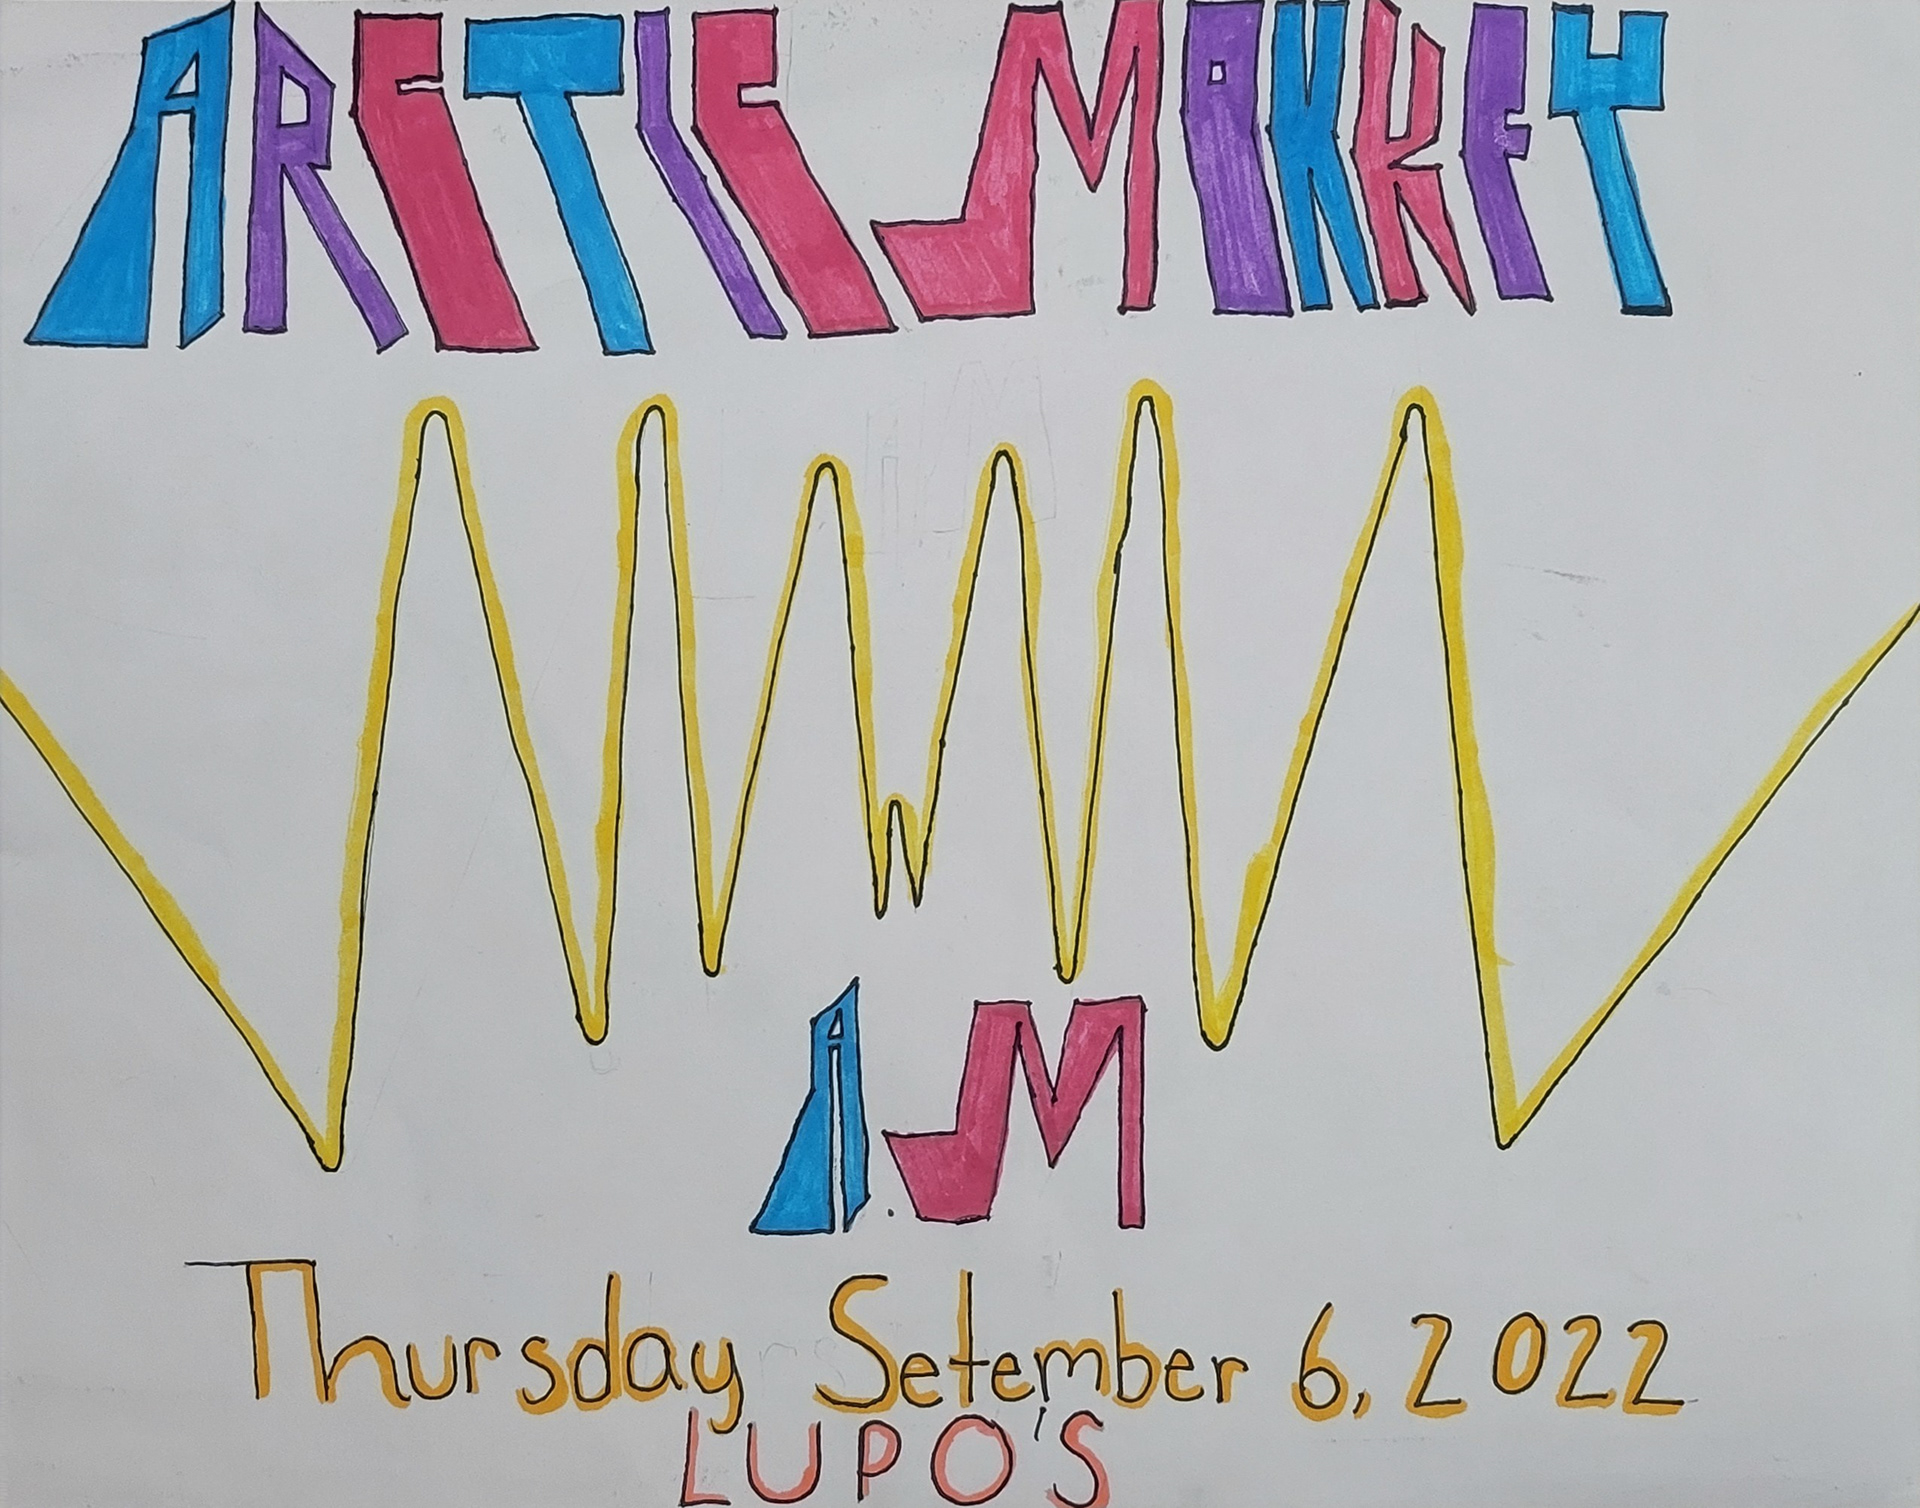 ARCTIC MONKEY
A.M
Thursday Setember 6, 2022
LUPO'S